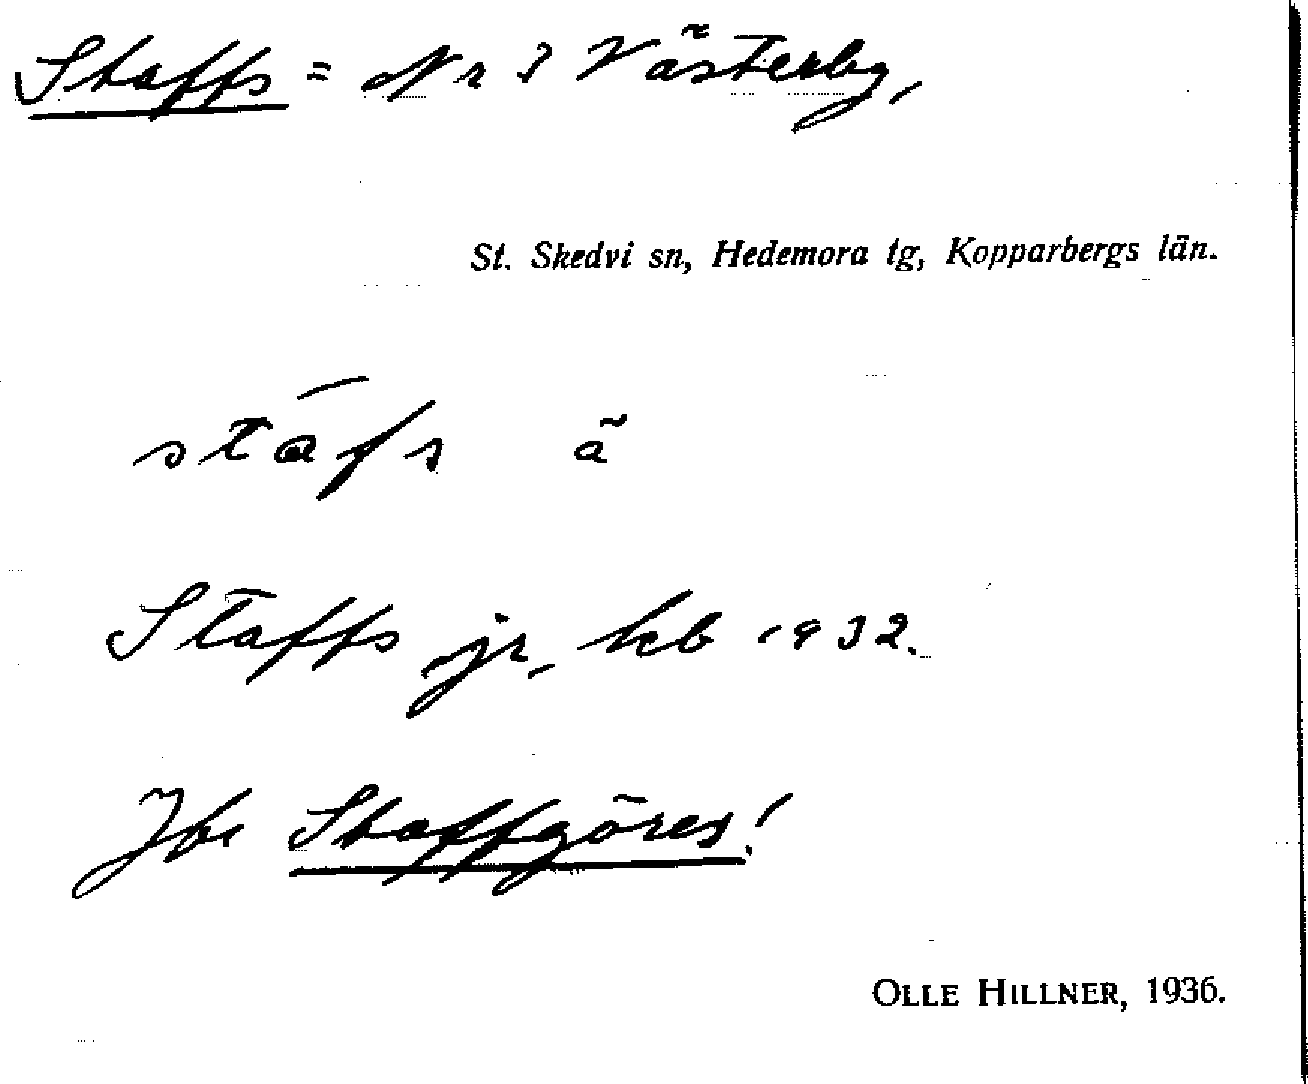 Staffs = Nr 3 Västerby,
St. Skedvi sn, Hedemora tg, Kopparbergs län.
stāfs ã
Staffs jr, kb 1932.
Jfr Staffgöres!
OLLE HILLNER, 1936.